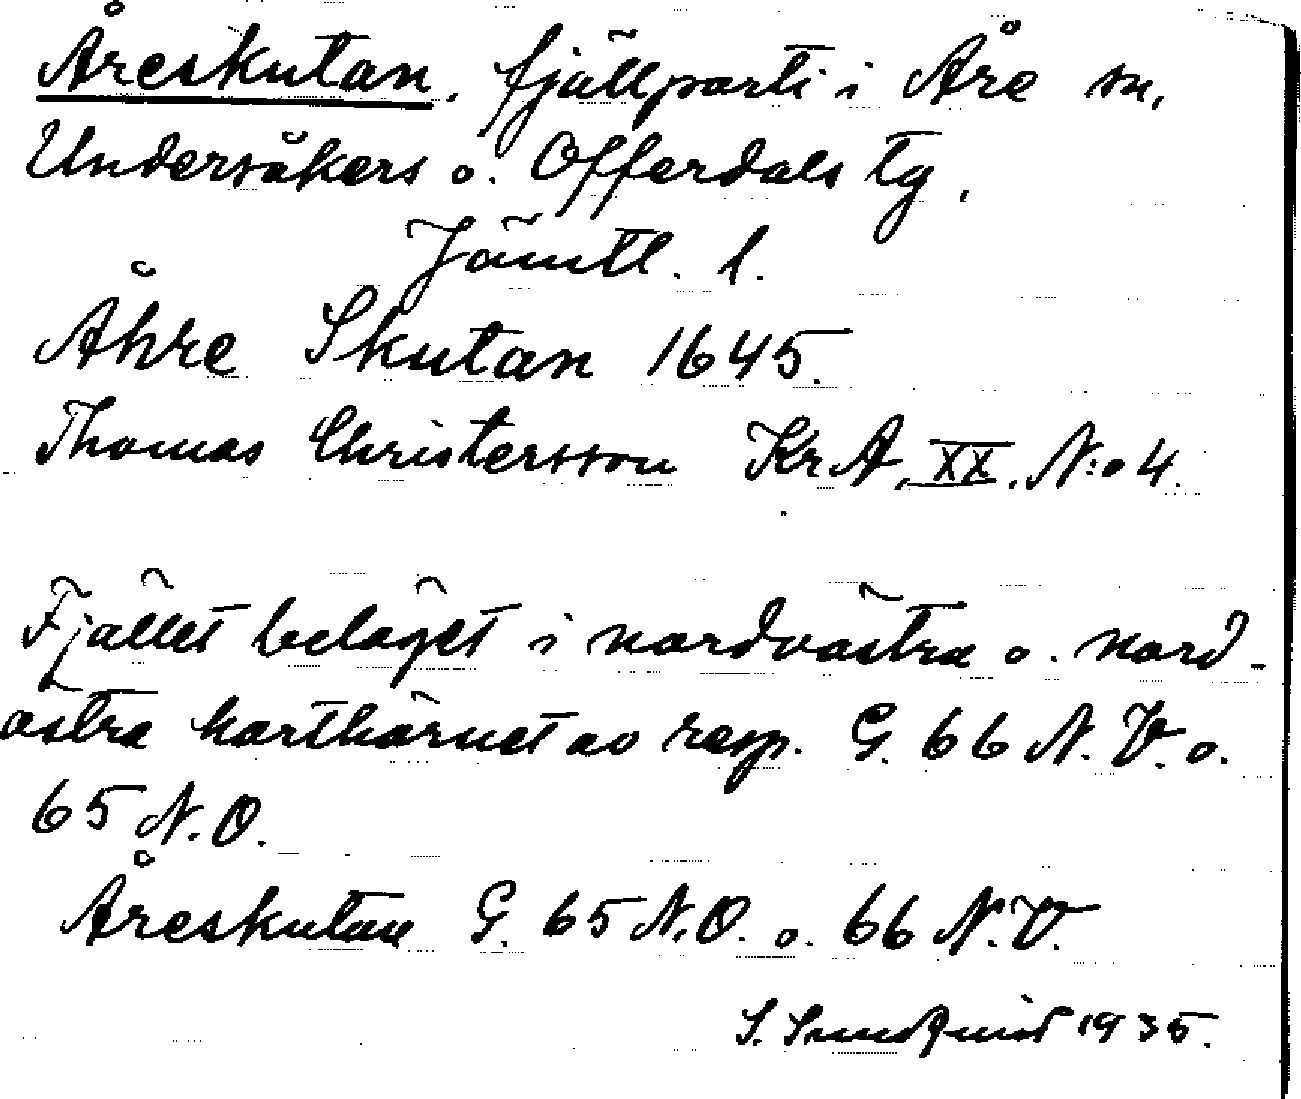 Åreskutan, fjällparti i Åre sn,
Undersåkers o. Offerdals tg,
Jämtl. l.
Åhre Skutan 1645.
Thomas Christersson KrA, XX, N:o 4.
Fjället beläget i nordvästra o. nord-
östra karthörnet av resp. G. 66 N.V. o.
65 N.O.
Åreskutan G. 65 N.O. o. 66 N.V.
S. Sundquist 1935.